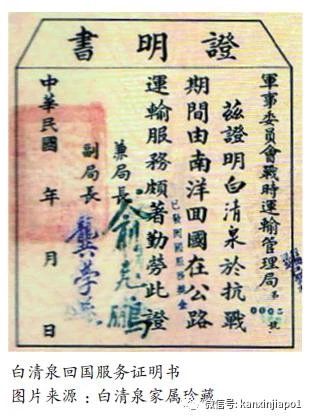 證明書
軍事委員會戰時運輸管理局
茲證明白清泉於抗戰
期間由南洋回國在公路
運輸服務頗著勤勞此證
兼局長 俞飛鵬
副局長 龔學遂
中華民國 年 月 日
白清泉回国服务证明书
图片来源：白清泉家属珍藏
微信号: kanxinjiapo1